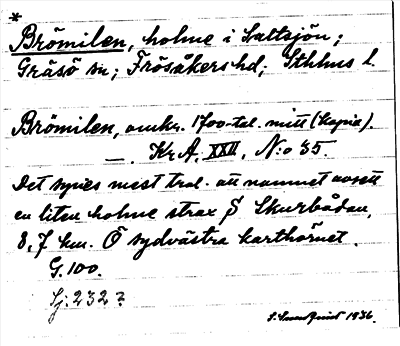 *
Brömilen, holme i Saltsjön;
Gräsö sn; Frösåkers hd; Sthlms l.
Brömilen, omkr. 1700-tal. mitt (kopia).
—. Kr A, XXII, N:o 35.
Det synes mest trol. att namnet avsett
en liten holme strax S Skurbådan,
8,7 km. O sydvästra karthörnet.
G. 100.
Sj: 232?
1936.